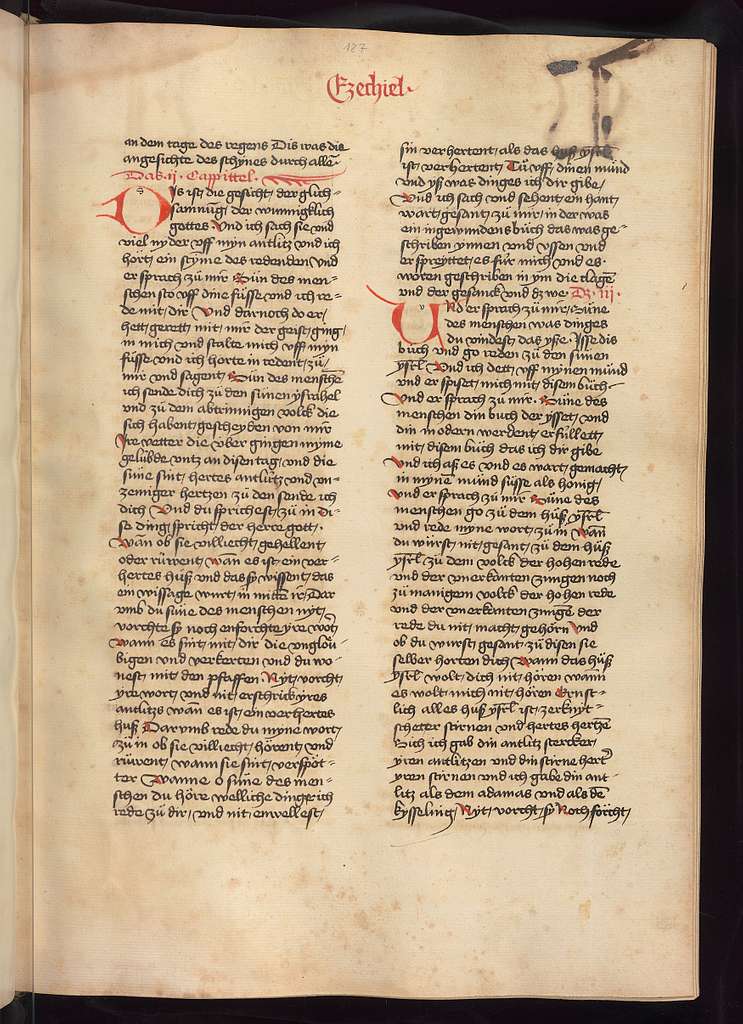 187
Ezechiel·
an dem tage des regens Dis was die
angesichte des schynes durch alle
Das·ij·Cappittel·
Dis ist die gesicht der glich-
samnūg der wunniglich
gottes· Vnd ich sach sie vnd
viel nyder vff myn antlitz vnd ich
hort ein styme des redenden vnd
er sprach zů mir Sůn des men-
schen sto vff dine fůsse vnd ich re-
de mit dir Vnd darnoch do er-
hett gerett mit mir der geist ging
in mich vnd stalte mich vff myn
fůsse vnd ich horte in redent zů
mir vnd sagent Sůn des mensche
ich sende dich zů den sůnen ysrahel
vnd zů dem abtrinnigen volck die
sich habent gescheyden von mir
Ire vetter die über gingen myme
gelübde vntz an disen tag vnd die
sůne sint hertes antlitz vnd vn-
zemiger hertzen zů den sende ich
dich Vnd du sprichest zů in di-
se ding spricht der herre gott·
Wan ob sie villiecht gehellent
oder růwent wan es ist ein ver-
hertes huß vnd das sy wissent das
ein wissage wurt in mitte ir Dar
vmb du sůne des menschen nyt
vorchte sy noch enforchte yre wort
Wann es sint mit dir die vnglöu-
bigen vnd verkerten vnd du wo-
nest mit den pfaffen Nyt vorcht
yre wort vnd nit erschrick yres
antlitz wan es ist ein verhertes
huß Darvmb rede du myne wort
zů in ob sie villiecht hörent vnd
růwent wann sie sint verspöt-
ter Wanne o sůne des men-
schen du höre welliche dinge ich
rede zů dir vnd nit enwellest
sin verhertent als das huß ysrl
ist verhertent Tů vff dinen mund
vnd yß was dinges ich dir gibe
Vnd ich sach vnd sehent ein hant
wart gesant zů mir in der was
ein ingewundens bůch das was ge-
schriben ynnen vnd vssen vnd
er spreyttet es für mich vnd es
woren geschriben in ym die clage
vnd der gesanck vnd dz we Dz·iij·
Vnd er sprach zů mir Sůne
des menschen was dinges
du vindest das ysse Isse dis
bůch vnd go reden zů den sůnen
ysrl Vnd ich dett vff mynen mund
vnd er spiset mich mit disen bůch
Vnd er sprach zů mir· Sůne des
menschen din buch der ysset vnd
din modern werdent erfüllett
mit disem bůch das ich dir gibe
Vnd ich aß es vnd es wart gemacht
in myne mund süsse als honig
Vnd er sprach zů mir Sůne des
menschen go zů dem huß ysrl
vnd rede myne wort zů in Wan
du würst nit gesant zů dem huß
ysrl zů dem volck der hohen rede
vnd der vnerkanten zungen noch
zů manigem volck der hohe rede
vnd der vnerkanten zunge der
rede du nit macht gehörn Vnd
ob du wurst gesant zů disen sie
selber horten dich Wann das huß
ysrl wolt dich nit hören wann
es wolt mich nit hören Ernst-
lich alles huß ysrl ist zerknyt-
scheter stirnen vnd hertes hertze
Sich ich gab din antlitz stercker
yren antlitzen vnd din stirne herter
yren stirnen vnd ich gabe din ant-
litz als dem adamas vnd als de
kysseling Nyt vorcht sy Noch förcht